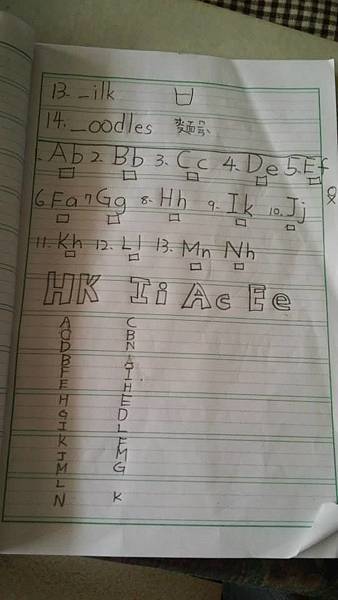 13. _ilk
14. _oodles 麵條
1. Ab 2. Bb 3. Cc 4. De 5. Ef
6. Fa 7 Gg 8. Hh 9. Ik 10. Jj
11. Kh 12. Ll 13. Mn Nh
HK Ii Ac Ee
A C
O B
D N
B
F I
E H
H E
G D
I L
K F
J M
M G
L
N K